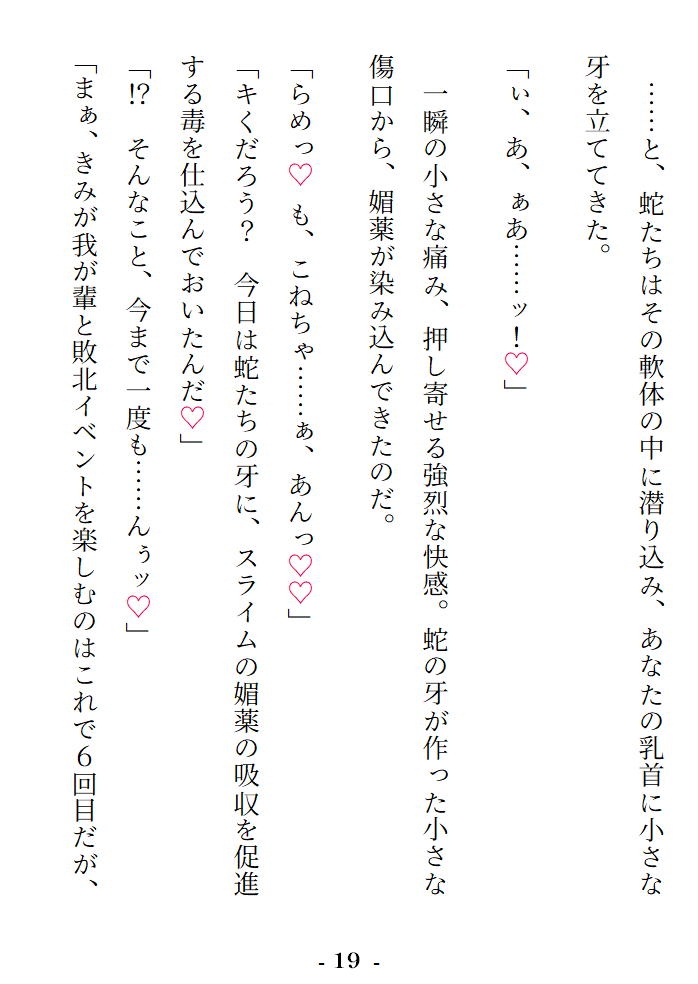 ……と、蛇たちはその軟体の中に潜り込み、あなたの乳首に小さな
牙を立ててきた。
「ぃ、あ、ぁあ……ッ！♡」
一瞬の小さな痛み、押し寄せる強烈な快感。蛇の牙が作った小さな
傷口から、媚薬が染み込んできたのだ。
「らめっ♡　も、こねちゃ……ぁ、あんっ♡♡」
「キくだろう？　今日は蛇たちの牙に、スライムの媚薬の吸収を促進
する毒を仕込んでおいたんだ♡」
「!?　そんなこと、今まで一度も……んぅッ♡」
「まぁ、きみが我が輩と敗北イベントを楽しむのはこれで６回目だが、
- 19 -